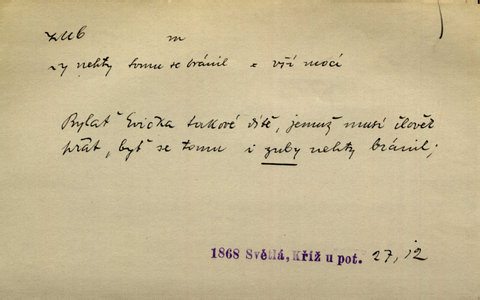 zub m
zy nehty tomu se bránil e vší mocí
Bylať Evička takové dítě, jemuž musí člověk
přát, byť se tomu i zuby nehty bránil;
1868 Světlá, Kříž u pot. 27, 12